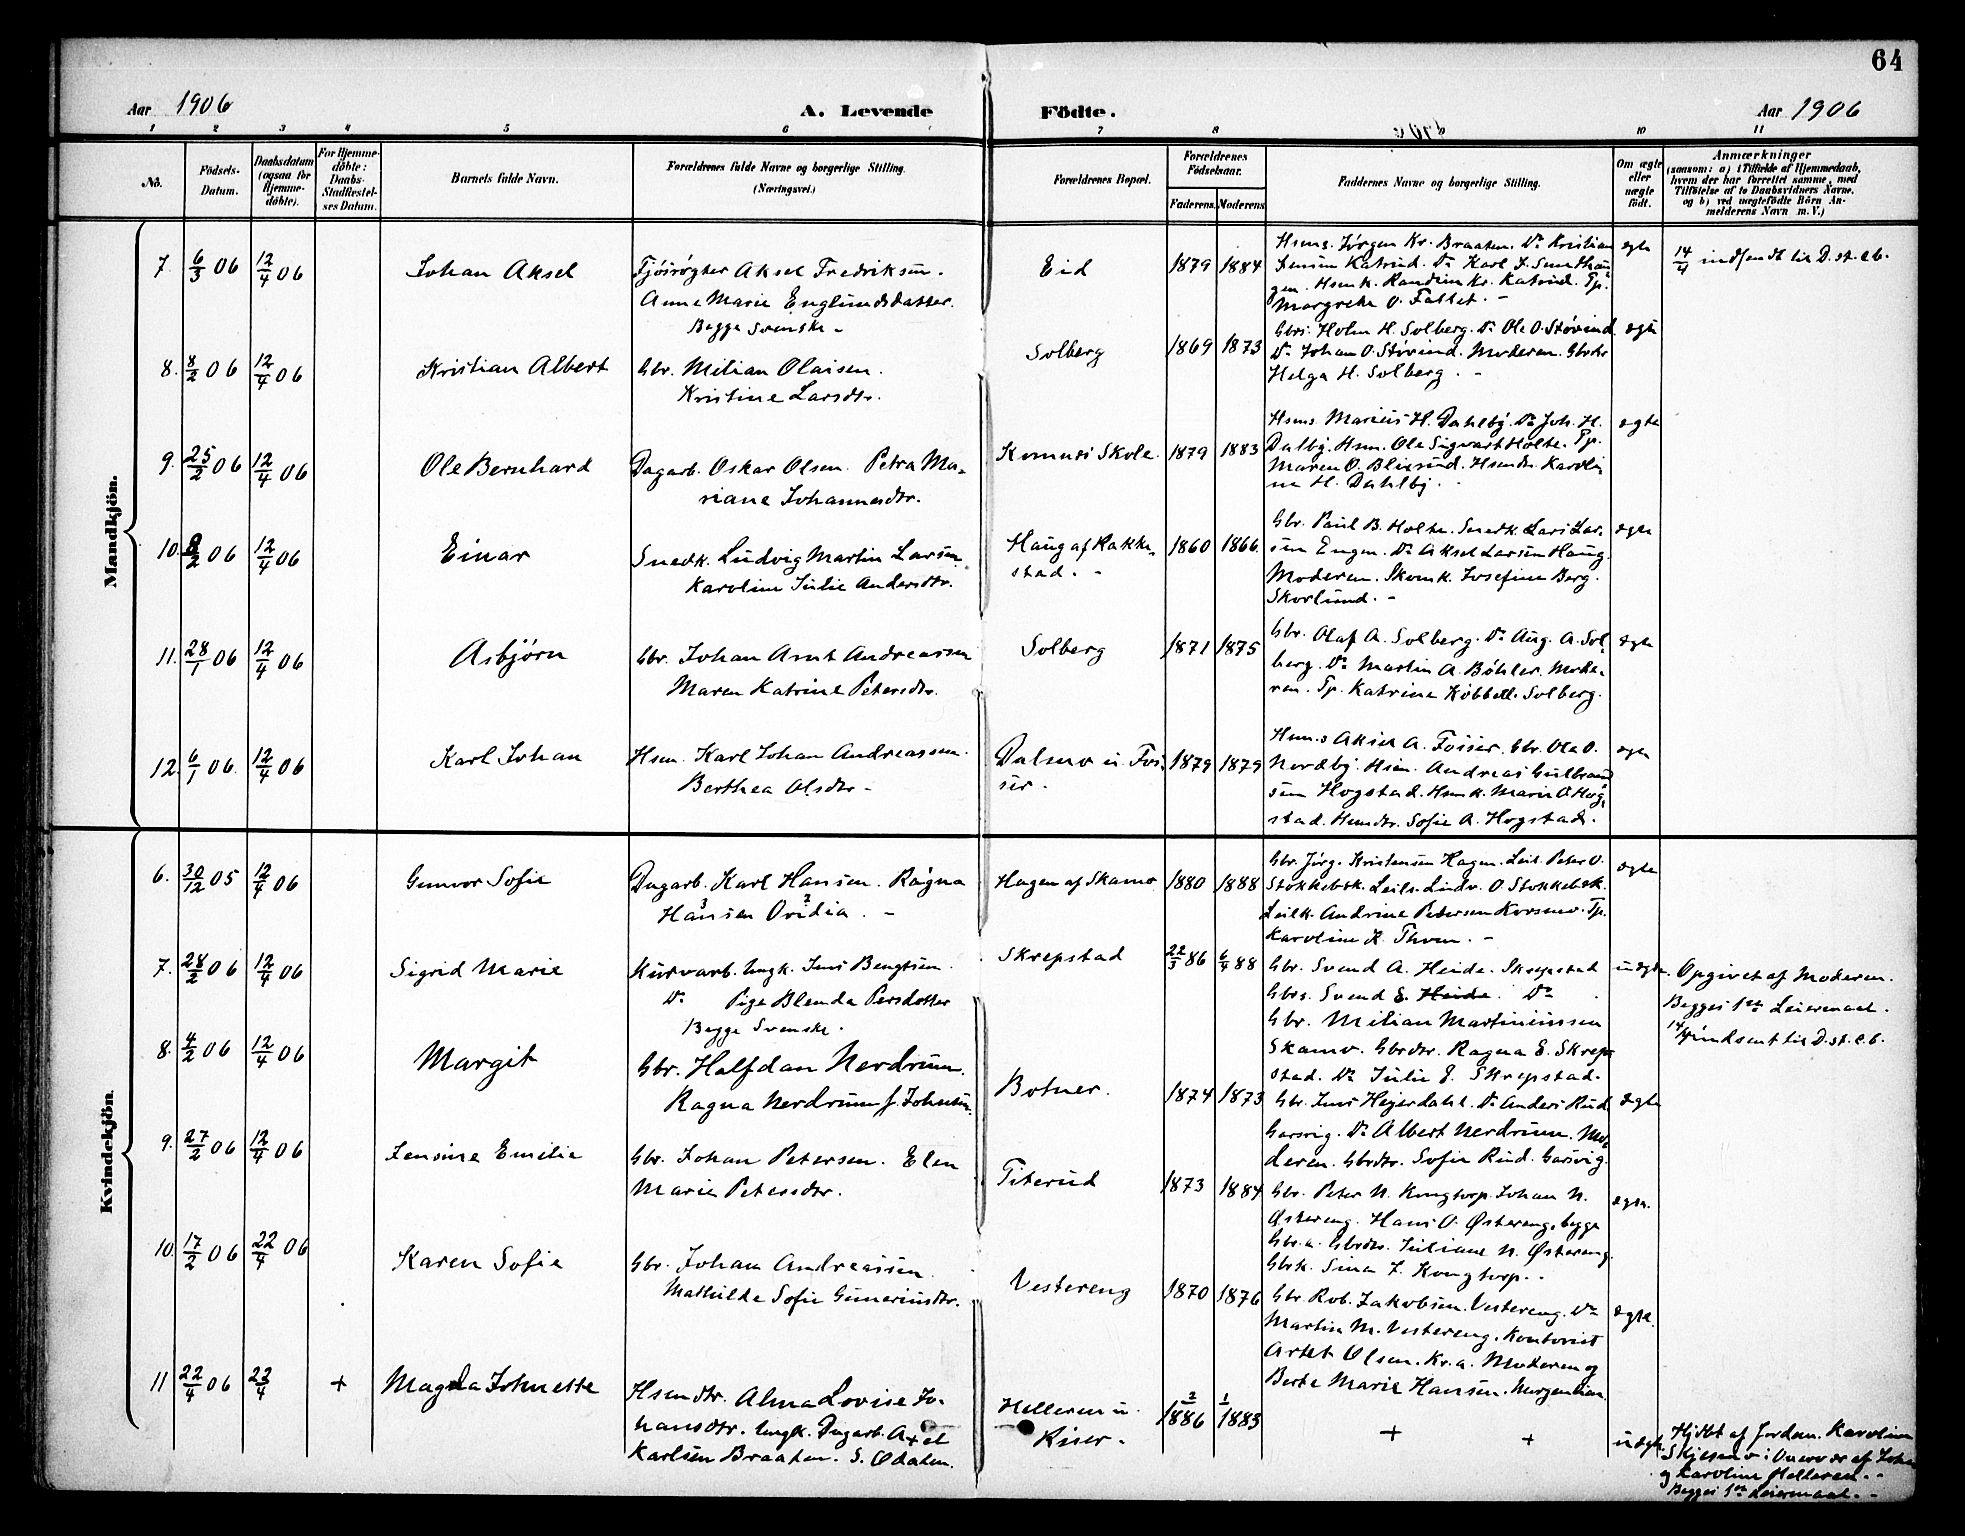 64
Aar 1906 A. Levende Födte. Aar 1906
1 2 3 4 5 6 7 8 9 10 11
No. Födsels-Datum. Daabsdatum (ogsaa for Hjemme-döbte). For Hjemme-döbte: Daabs-Stadfæstel-ses Datum. Barnets fulde Navn. Forældrenes fulde Navne og borgerlige Stilling. (Næringsvei.) Forældrenes Bopæl. Forældrenes Födselsaar. Faderens. Moderens. Faddernes Navne og borgerlige Stilling. Om ægte eller uægte födt. Anmærkninger (saasom: a) i Tilfælde af Hjemmedaab, hvem der har forrettet samme, med Tilföielse af to Daabsvidners Navne, og b) ved uægtefödte Börn An-melderens Navn m. V.)
Mandkjön.
7. 6/3 06 12/4 06 Johan Aksel
Fjøsrøgter Aksel Fredriksen.
Anne Marie Englundsdatter.
Begge Svenske -
Eid 1879 1884
Hsms. Jørgen Kr. Braaten. Do Kristian
Jensen Katrud. Do Karl J. Smedhau-
gen. Hsmk. Randine Kr. Katrud. Tp.
Margrethe O. Fallet. -
egte
14/4 indsendt til D. st. c. b.
8. 8/2 06 12/4 06 Kristian Albert
Gbr. Milian Olaisen.
Kristine Larsdtr.
Solberg 1869 1873
Gbrs. Holm H. Solberg. Do Ole O. Støvind.
Do Johan O. Støvind. Moderen. Gbrdtr
Helga H. Solberg. -
egte
9. 25/2 06 12/4 06 Ole Bernhard
Dagarb. Oskar Olsen. Petra Ma-
riane Johannesdtr.
Komnæs Skole. 1879 1883
Hsms. Marius H. Dahlby. Do Joh. H.
Dalby. Hsm. Ole Sigvart Holte. Tp.
Maren O. Blixrud. Hsmdtr. Karoli-
ne H. Dahlby.
egte
10. 8/2 06 12/4 06 Einar
Snedk. Ludvig Martin Larsen
Karoline Julie Andersdtr.
Haug af Rakke-
stad. -
1860 1866.
Gbr. Paul B. Holte. Snedk. Lars Lar-
sen Engen. Do Aksel Larsen Haug.
Moderen. Skomk. Josefine Berg.
Skorlund. -
egte
11. 28/1 06 12/4 06 Asbjørn
Gbr. Johan Arnt Andreassen
Maren Katrine Petersdtr.
Solberg 1871 1875
Gbr. Olaf A. Solberg. Do Aug. A. Sol-
berg. Do Martin A. Bøhler. Mode-
ren. Tp. Katrine Købbell. Solberg.
egte
12. 6/1 06. 12/4 06 Karl Johan
Hsm. Karl Johan Andreassen.
Berthea Olsdtr -
Dalsmo u. Fos-
ser.
1879 1879
Hsm.s Aksel A. Fosser. Gbr. Ole O.
Nordby. Hsm. Andreas Gulbrand-
sen Hogstad. Hsmk. Marie O. Hog-
stad. Hsmdtr. Sofie A. Hogstad.
egte
Kvindekjön.
6. 30/12 05 12/4 06 Gunvor Sofie
Dagarb. Karl Hansen. Ragna
Hansen 3 Ovidia 2. -
Hagen af Skamo 1880 1888
Gbr. Jørg. Kristensen Hagen. Leil. Peter O.
Stokkebæk. Leils. Ludv. O. Stokkebæk.
Leilk. Andrine Petersen Korsmo. Tp.
Karoline K. Thoen. -
egte
7. 28/2 06 12/4 06 Sigrid Marie
Kurvarb. Ungk. Jens Bengtsen.
Do Pige Blenda Persdotter
Begge Svenske.
Skrepstad 22/3 86 6/4 88
Gbr. Svend A. Heide. Skrepstad
Gbrs. Svend E. Heide. Do
Gbr. Milian Martiniussen
Skamo. Gbrdtr. Ragna E. Skrep-
stad. Do Julie E. Skrepstad.
uegte.
Opgivet af Moderen.
Begges 1ste Leiermaal.
14/4 indsent til D. st. c. b.
8. 4/2 06 12/4 06 Margit
Gbr. Halfdan Nerdrum.
Ragna Nerdrum f. Johnsen.
Botner. 1874 1873
Gbr. Jens Heyerdahl. Do Anders Rud
Garsvig. Do Albert Nerdrum. Mo-
deren. Gbrdtr. Sofie Rud. Garsvig.
egte
9. 27/2 06 12/4 06 Jensine Emilie
Gbr. Johan Petersen. Elen
Marie Petersdtr.
Titerud 1873 1884
Gbr. Peter N. Kongtorp. Johan N.
Østereng. Hans O. Østereng, begge
Gbr.a. Gbrdtr. Juliane N. Østereng.
Gbrk. Sina J. Kongtorp. -
egte.
10. 17/2 06 22/4 06 Karen Sofie
Gbr. Johan Andreassen.
Mathilde Sofie Guneriusdtr.
Vestereng 1870 1876
Gbr. Rob. Jakobsen. Vestereng. Do
Martin M. Vestereng. Kontorist
Artet Olsen. Kr.a. Moderen og
Berte Marie Hansen.
egte.
11 22/4 06 22/4 + Magda Johnette
Hsmdtr. Alma Lovise Jo-
hansdtr. Ungk. Dagarb. Axel
Karlsen Braaten. S. Ødalen.
Helleren u.
Riser.
2 1886 1 1883
+ +
uegte.
Hjdbt af Jordm. Karoline
Skjesmo i Overvær af Johan
og Karoline Helleren. -
Begges 1ste Leiermaal. -